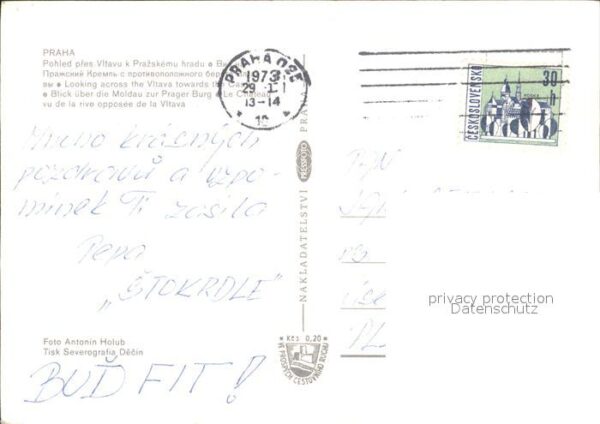 PRAHA
Pohled přes Vltavu k Pražskému hradu ● Ba
Пражский Кремль с противоположного бер
вы ● Looking across the Vltava towards the Cas
● Blick über die Moldau zur Prager Burg ● Le Château
vu de la rive opposée de la Vltava
PRAHA 025
1973
29. I. 1
13-14
10
ČESKOSLOVENSKO
30
h
Mnoho krásných
pozdravů a vzpo-
mínek Ti zasílá
Pepa
„ŠTOKRDLE"
NAKLADATELSTVÍ PRESSFOTO PRAHA
PAN
privacy protection
Datenschutz
Foto Antonín Holub
Tisk Severografia Děčín
BUĎ FIT!
Kčs 0,20
VE PROSPĚCH CESTOVNÍHO RUCHU